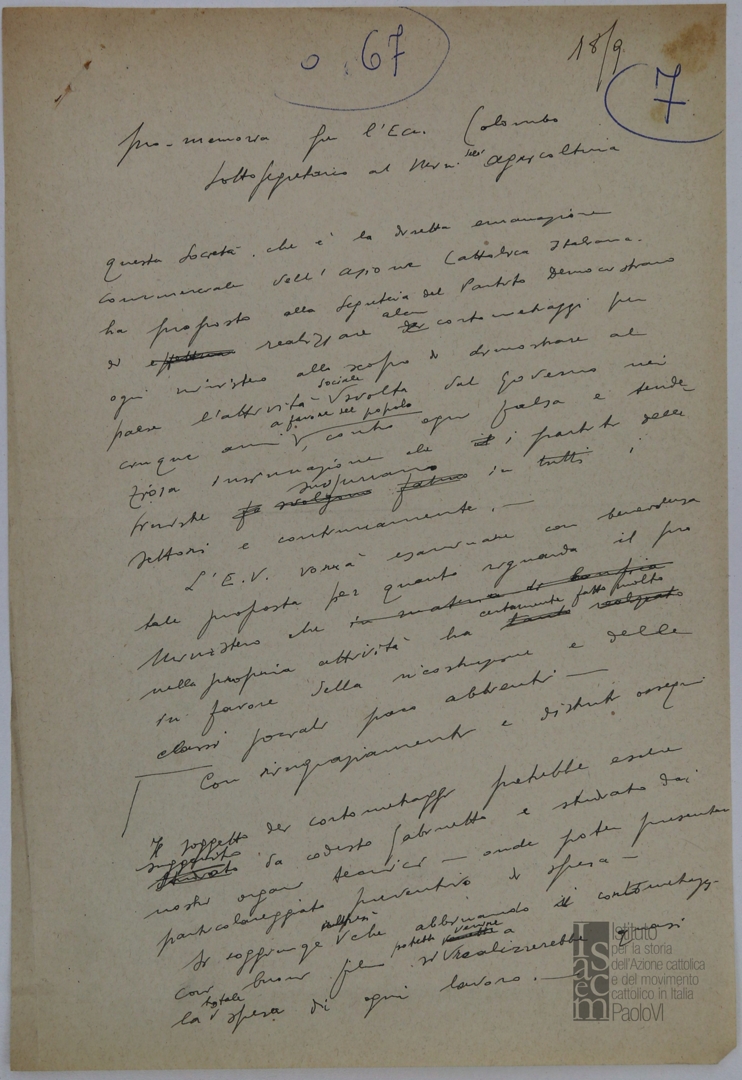 0.67
18/9
7
pro-memoria per l'Ecc. Colombo
Sottosegretario al Min. dell' Agricoltura
questa Società, che è la diretta emanazione
commerciale dell'Azione Cattolica Italiana.
ha proposto alla Segreteria del Partito Democristiano
di effettuare realizzare alcuni cortometraggi per
ogni ministero allo scopo di dimostrare al
paese l'attività sociale svolta dal governo nei
cinque anni a favore del popolo, contro ogni falsa e tenden
ziosa insinuazione che i partiti delle
sinistre insinuano in tutti i
settori e continuamente. —
L'E.V. vorrà esaminare con benevolenza
tale proposta per quanto riguarda il pro
Ministero che in materia di bonifica
nella propria attività ha certamente fatto molto tanto realizzato
in favore della ricostruzione e delle
classi sociali poco abbienti —
Con ringraziamenti e distinti ossequi
Il soggetto dei cortometraggi potrebbe essere
suggerito studiato da codesto Gabinetto e studiato dai
nostri organi tecnici — onde poter presentare
particolareggiato preventivo di spesa —
Si soggiunge che abbinando i cortometragg-
con buoni film si potrebbe venire a realizzerebbe quasi
la totale spesa di ogni lavoro. —
Isacem
Istituto
per la storia
dell'Azione cattolica
e del movimento
cattolico in Italia
Paolo VI